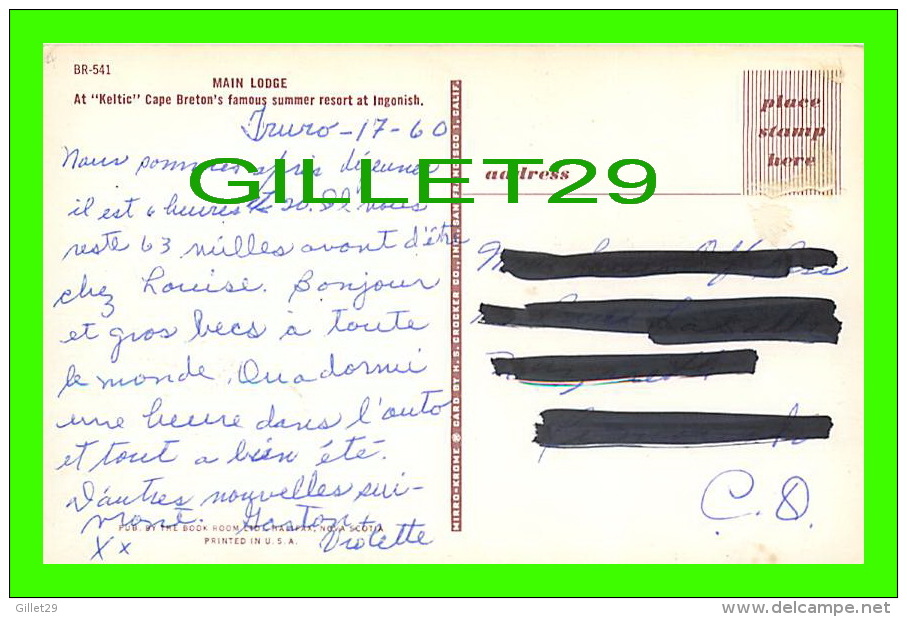 BR-541
MAIN LODGE
At "Keltic" Cape Breton's famous summer resort at Ingonish.
Truro-17-60
Nous sommes après déjeuner
il est 6 heures 20. Il nous
reste 63 milles avant d'être
chez Louise. Bonjour
et gros becs à toute
le monde. On a dormi
une heure dans l'auto
et tout a bien été.
D'autres nouvelles sui-
vront. Gaston
Violette
Xx
PUB. BY THE BOOK ROOM LTD. HALIFAX, NOVA SCOTIA
PRINTED IN U.S.A.
MIRRO-KROME ® CARD BY H.S. CROCKER CO., INC. SAN FRANCISCO 1, CALIF.
place
stamp
here
address
C.O.
GILLET29
Gillet29
www.delcampe.net